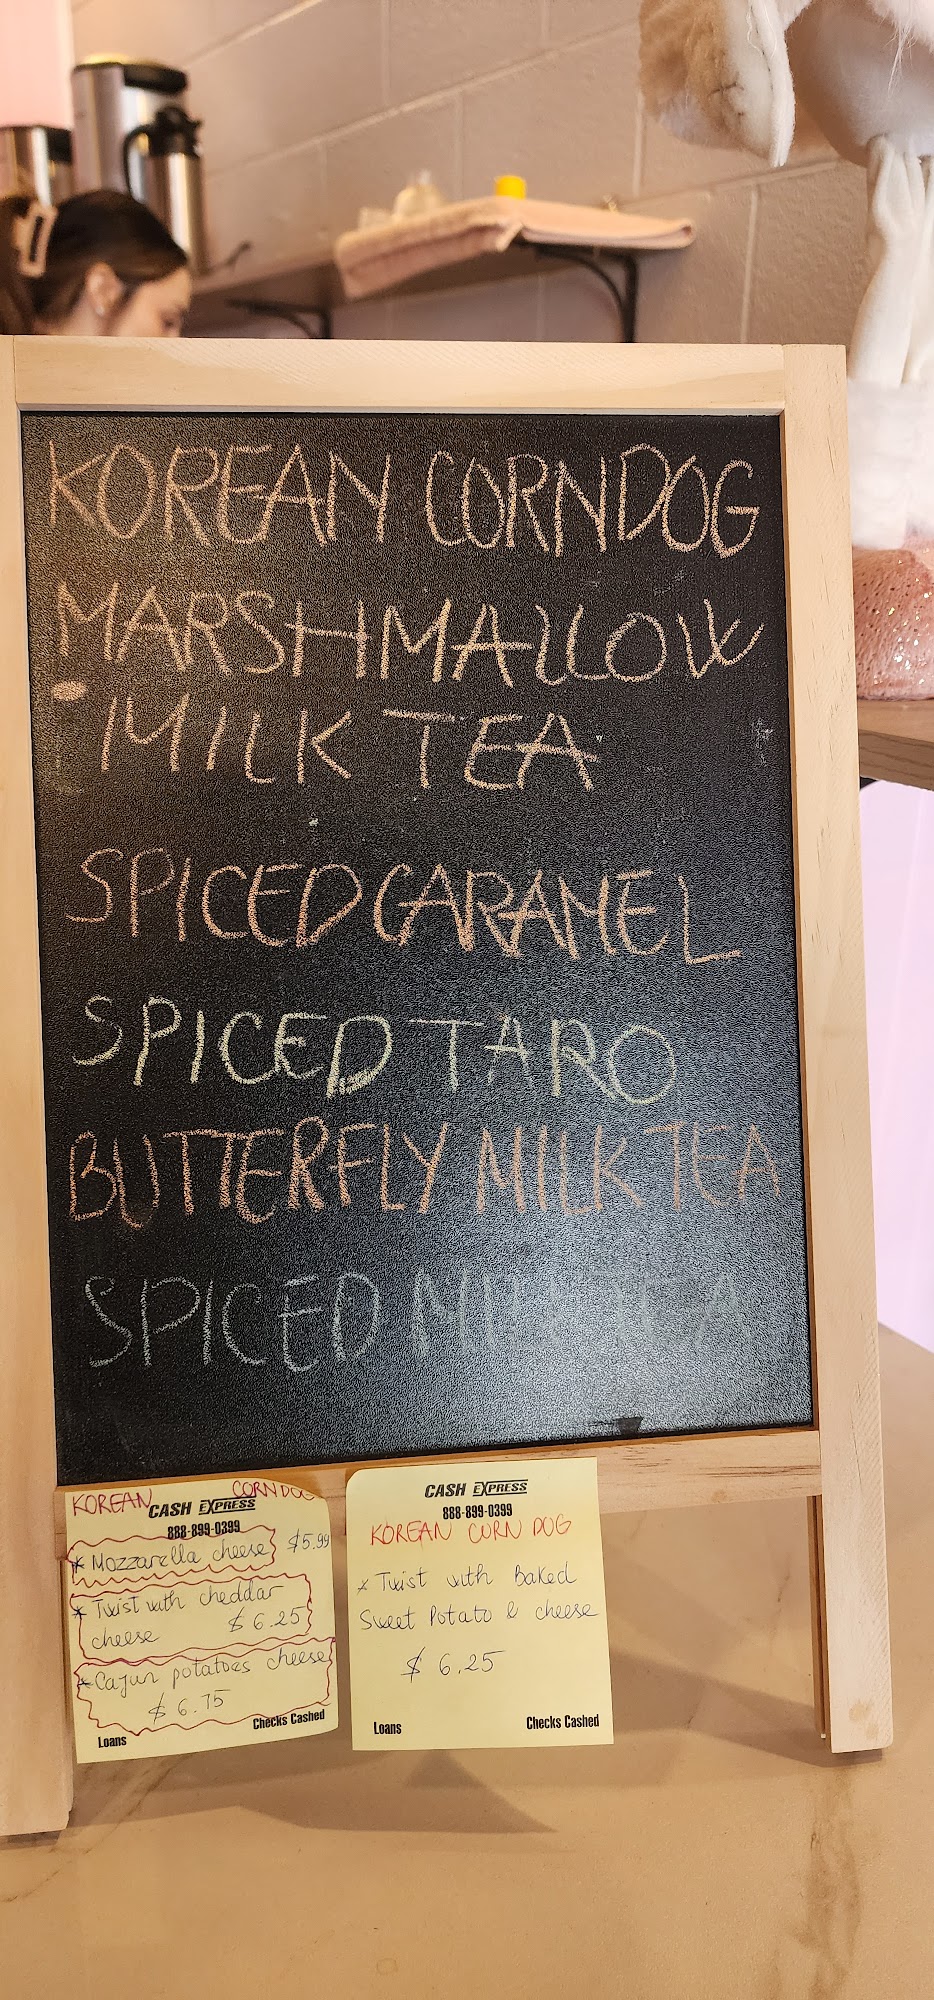 KOREAN CORNDOG
MARSHMALLOW
MILK TEA
SPICED CARAMEL
SPICED TARO
BUTTERFLY MILK TEA
SPICED MILK TEA
KOREAN CORNDOG
CASH EXPRESS
888-899-0399
* Mozzarella cheese $5.99
* Twist with cheddar
cheese $6.25
* Cajun potatoes cheese
$6.75
Checks Cashed
Loans
CASH EXPRESS
888-899-0399
KOREAN CORN DOG
* Twist with Baked
Sweet Potato & cheese
$6.25
Loans Checks Cashed